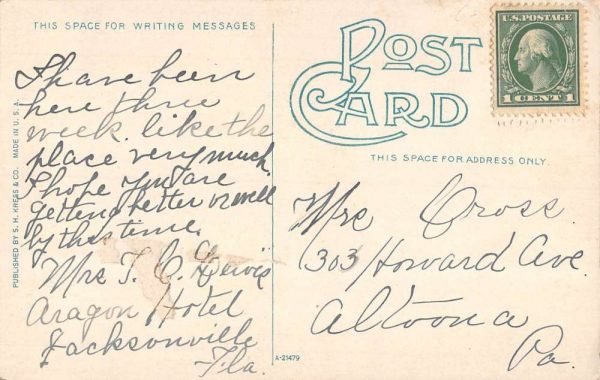 THIS SPACE FOR WRITING MESSAGES
I have been
here three
week. like the
place very much.
I hope you are
getting better & well
by this time.
Mrs
Aragon Hotel
Jacksonville
Fla.
PUBLISHED BY S. H. KRESS & CO. MADE IN U.S.A.
POST
CARD
U.S. POSTAGE
1 CENT 1
THIS SPACE FOR ADDRESS ONLY.
Mrs Cross
303 Howard Ave.
Altoona
Pa.
A-21479